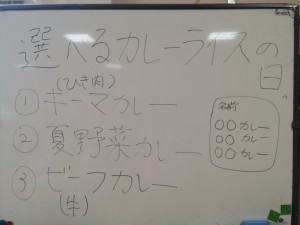 選べるカレーライスの
日
(ひき肉)
①キーマカレー
②夏野菜カレー
③ビーフカレー
(牛)
名前
〇〇カレー
〇〇カレー
〇〇カレー